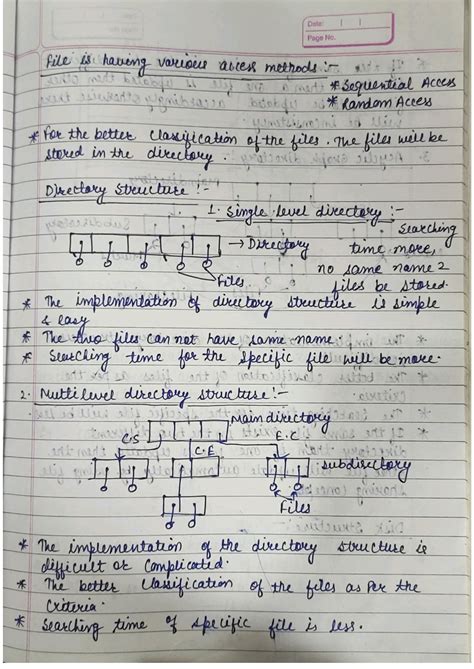 Date: | |
Page No.
File is having various access methods :-
* Sequential Access
* Random Access
* For the better classification of the files. The files will be
stored in the directory.
Directory Structure :-
1. Single level directory :-
→ Directory
Files
Searching
time more,
no same name 2
files be stored.
* The implementation of directory structure is simple
& easy
* The two files can not have same name.
* Searching time for the specific file will be more.
2. Multilevel directory structure :-
Main directory
C.S
C.E
E.C
subdirectory
Files
* The implementation of the directory structure is
difficult or complicated.
* The better classification of the files as per the
criteria.
* Searching time of specific file is less.